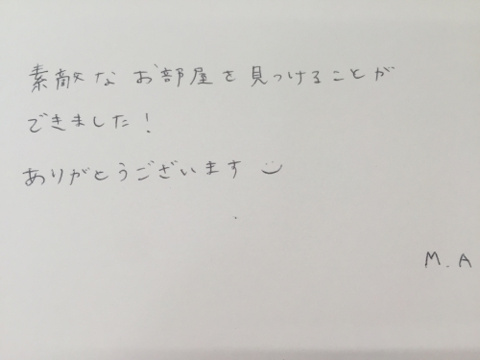 素敵なお部屋を見つけることが
できました！
ありがとうございます
M.A